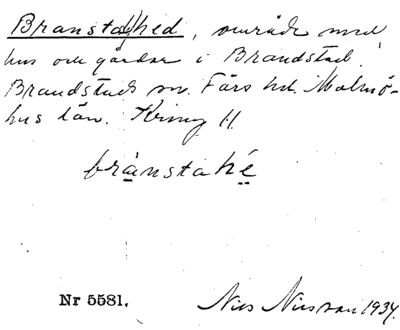 Branstad hed, område med
hus och gårdar i Brandstad,
Brandstads sn. Färs hd. Malmö-
hus län. Kring H.
bränstahé
Nr 5581.
Nils Nilsson 1934.